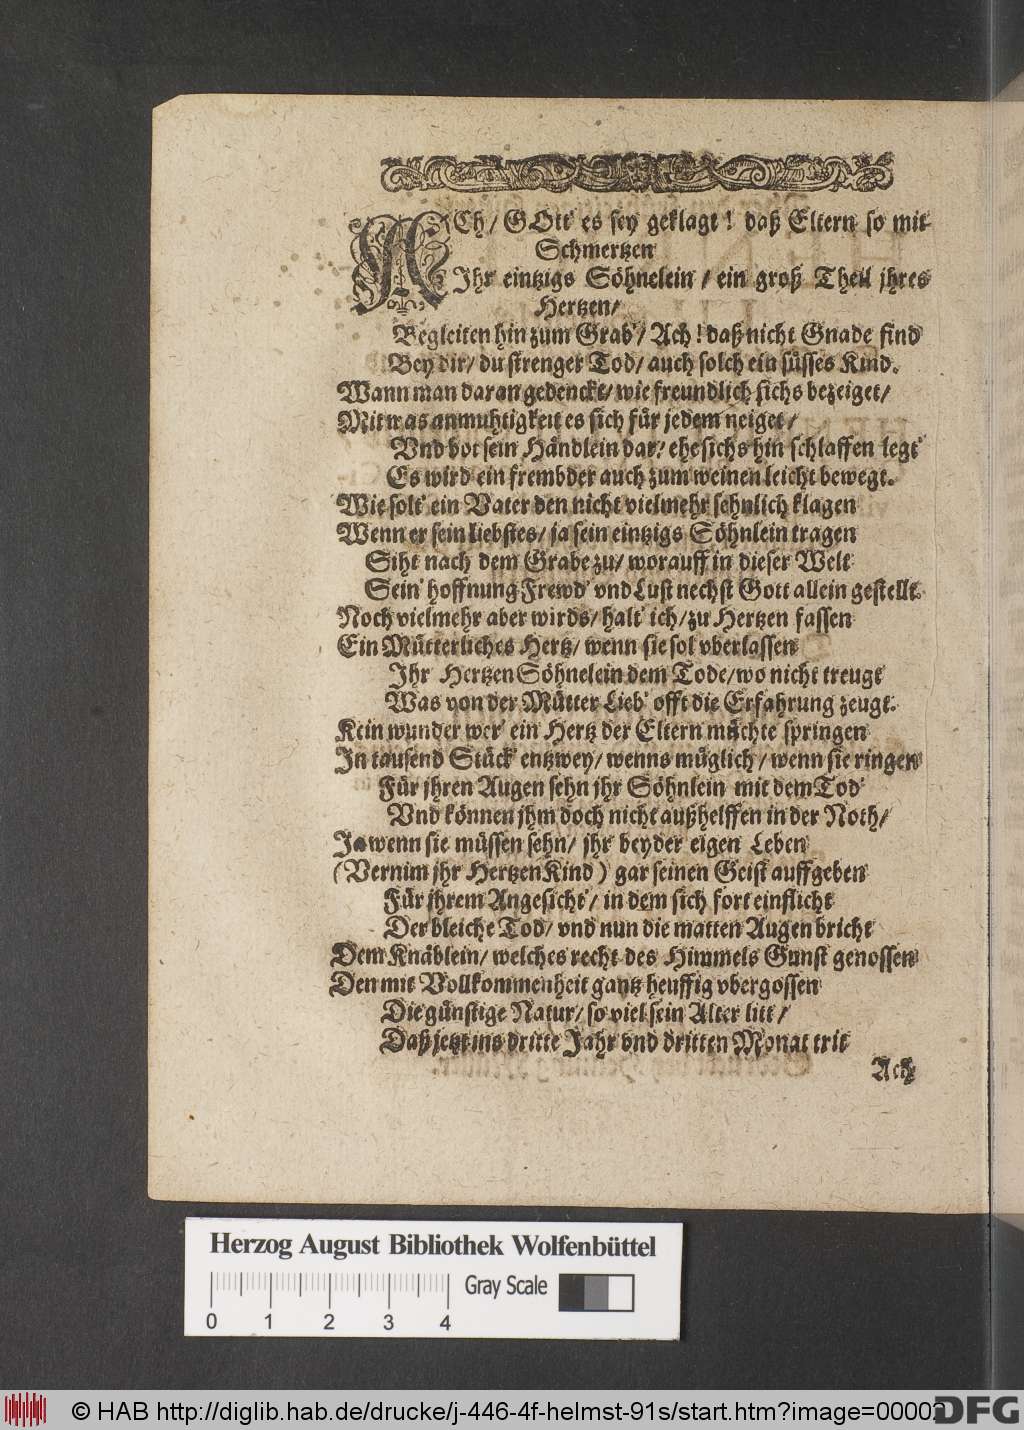 ACh/ GOtt es sey geklagt! daß Eltern so mit
Schmertzen
Ihr eintzigs Söhnelein/ ein groß Theil jhres
Hertzen/
Begleiten hin zum Grab'/ Ach! daß nicht Gnade find
Bey dir/ du strenger Tod/ auch solch ein süsses Kind.
Wann man daran gedenckt/ wie freundlich sichs bezeiget/
Mit was anmuhtigkeit es sich für jedem neiget/
Vnd bot sein Händlein dar/ ehe sichs hin schlaffen legt
Es wird ein frembder auch zum weinen leicht bewegt.
Wie solt' ein Vater den nicht vielmehr sehnlich klagen
Wenn er sein liebstes/ ja sein eintzigs Söhnlein tragen
Siht nach dem Grabe zu/ worauff in dieser Welt
Sein' hoffnung Frewd' vnd Lust nechst Gott allein gestellt.
Noch vielmehr aber wirds/ halt' ich/ zu Hertzen fassen
Ein Mütterliches Hertz/ wenn sie sol vberlassen
Ihr Hertzen Söhnelein dem Tode/ wo nicht treugt
Was von der Mütter Lieb' offt die Erfahrung zeugt.
Kein wunder wer' ein Hertz der Eltern müchte springen
In tausend Stück' entzwey/ wenns müglich/ wenn sie ringen
Für jhren Augen sehn jhr Söhnlein mit dem Tod'
Vnd können jhm doch nicht außhelffen in der Noth/
Ja wenn sie müssen sehn/ jhr beyder eigen Leben
(Vernim jhr Hertzen Kind) gar seinen Geist auffgeben
Für jhrem Angesicht'/ in dem sich fort einflicht
Der bleiche Tod/ vnd nun die matten Augen bricht
Dem Knäblein/ welches recht des Himmels Gunst genossen
Den mit Vollkommenheit gantz heuffig vbergossen
Die günstige Natur/ so viel sein Alter litt/
Daß jetzt ins dritte Jahr vnd dritten Monat trit
Ach
Herzog August Bibliothek Wolfenbüttel
Gray Scale
0 1 2 3 4
© HAB http://diglib.hab.de/drucke/j-446-4f-helmst-91s/start.htm?image=00002
DFG